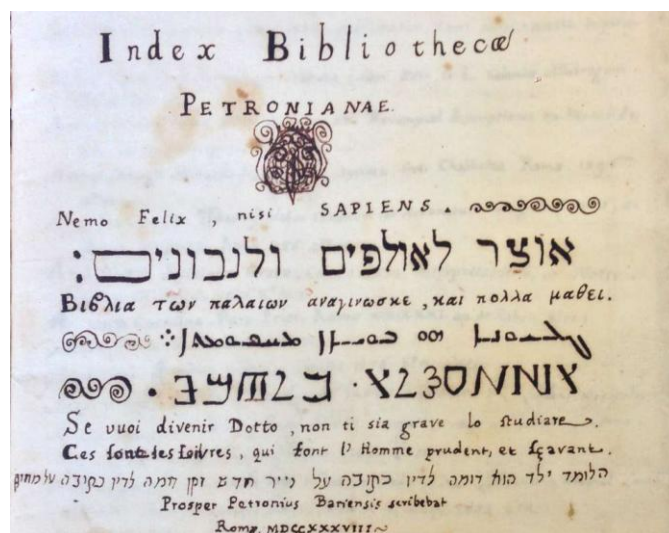 Index Bibliothecæ
PETRONIANAE.
Nemo Felix, nisi SAPIENS.
אוצר לאולפים ולנבונים:
Βιβλια των παλαιων αναγινωσκε, και πολλα μαθει.
Se vuoi divenir Dotto, non ti sia grave lo studiare.
Ces sont les loivres, qui font l'Homme prudent, et sçavant.
הלומד ילד הוא דומה לדיו כתובה על נייר חדש זקן דומה לדיו כתובה על
Prosper Petronius Bariensis scribebat
Romę, MDCCXXXVIII